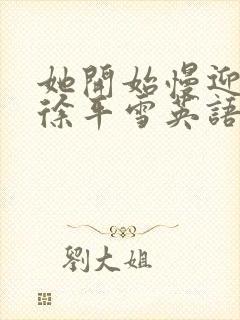 她開始慢迎
徐平雪英語
劉大姐